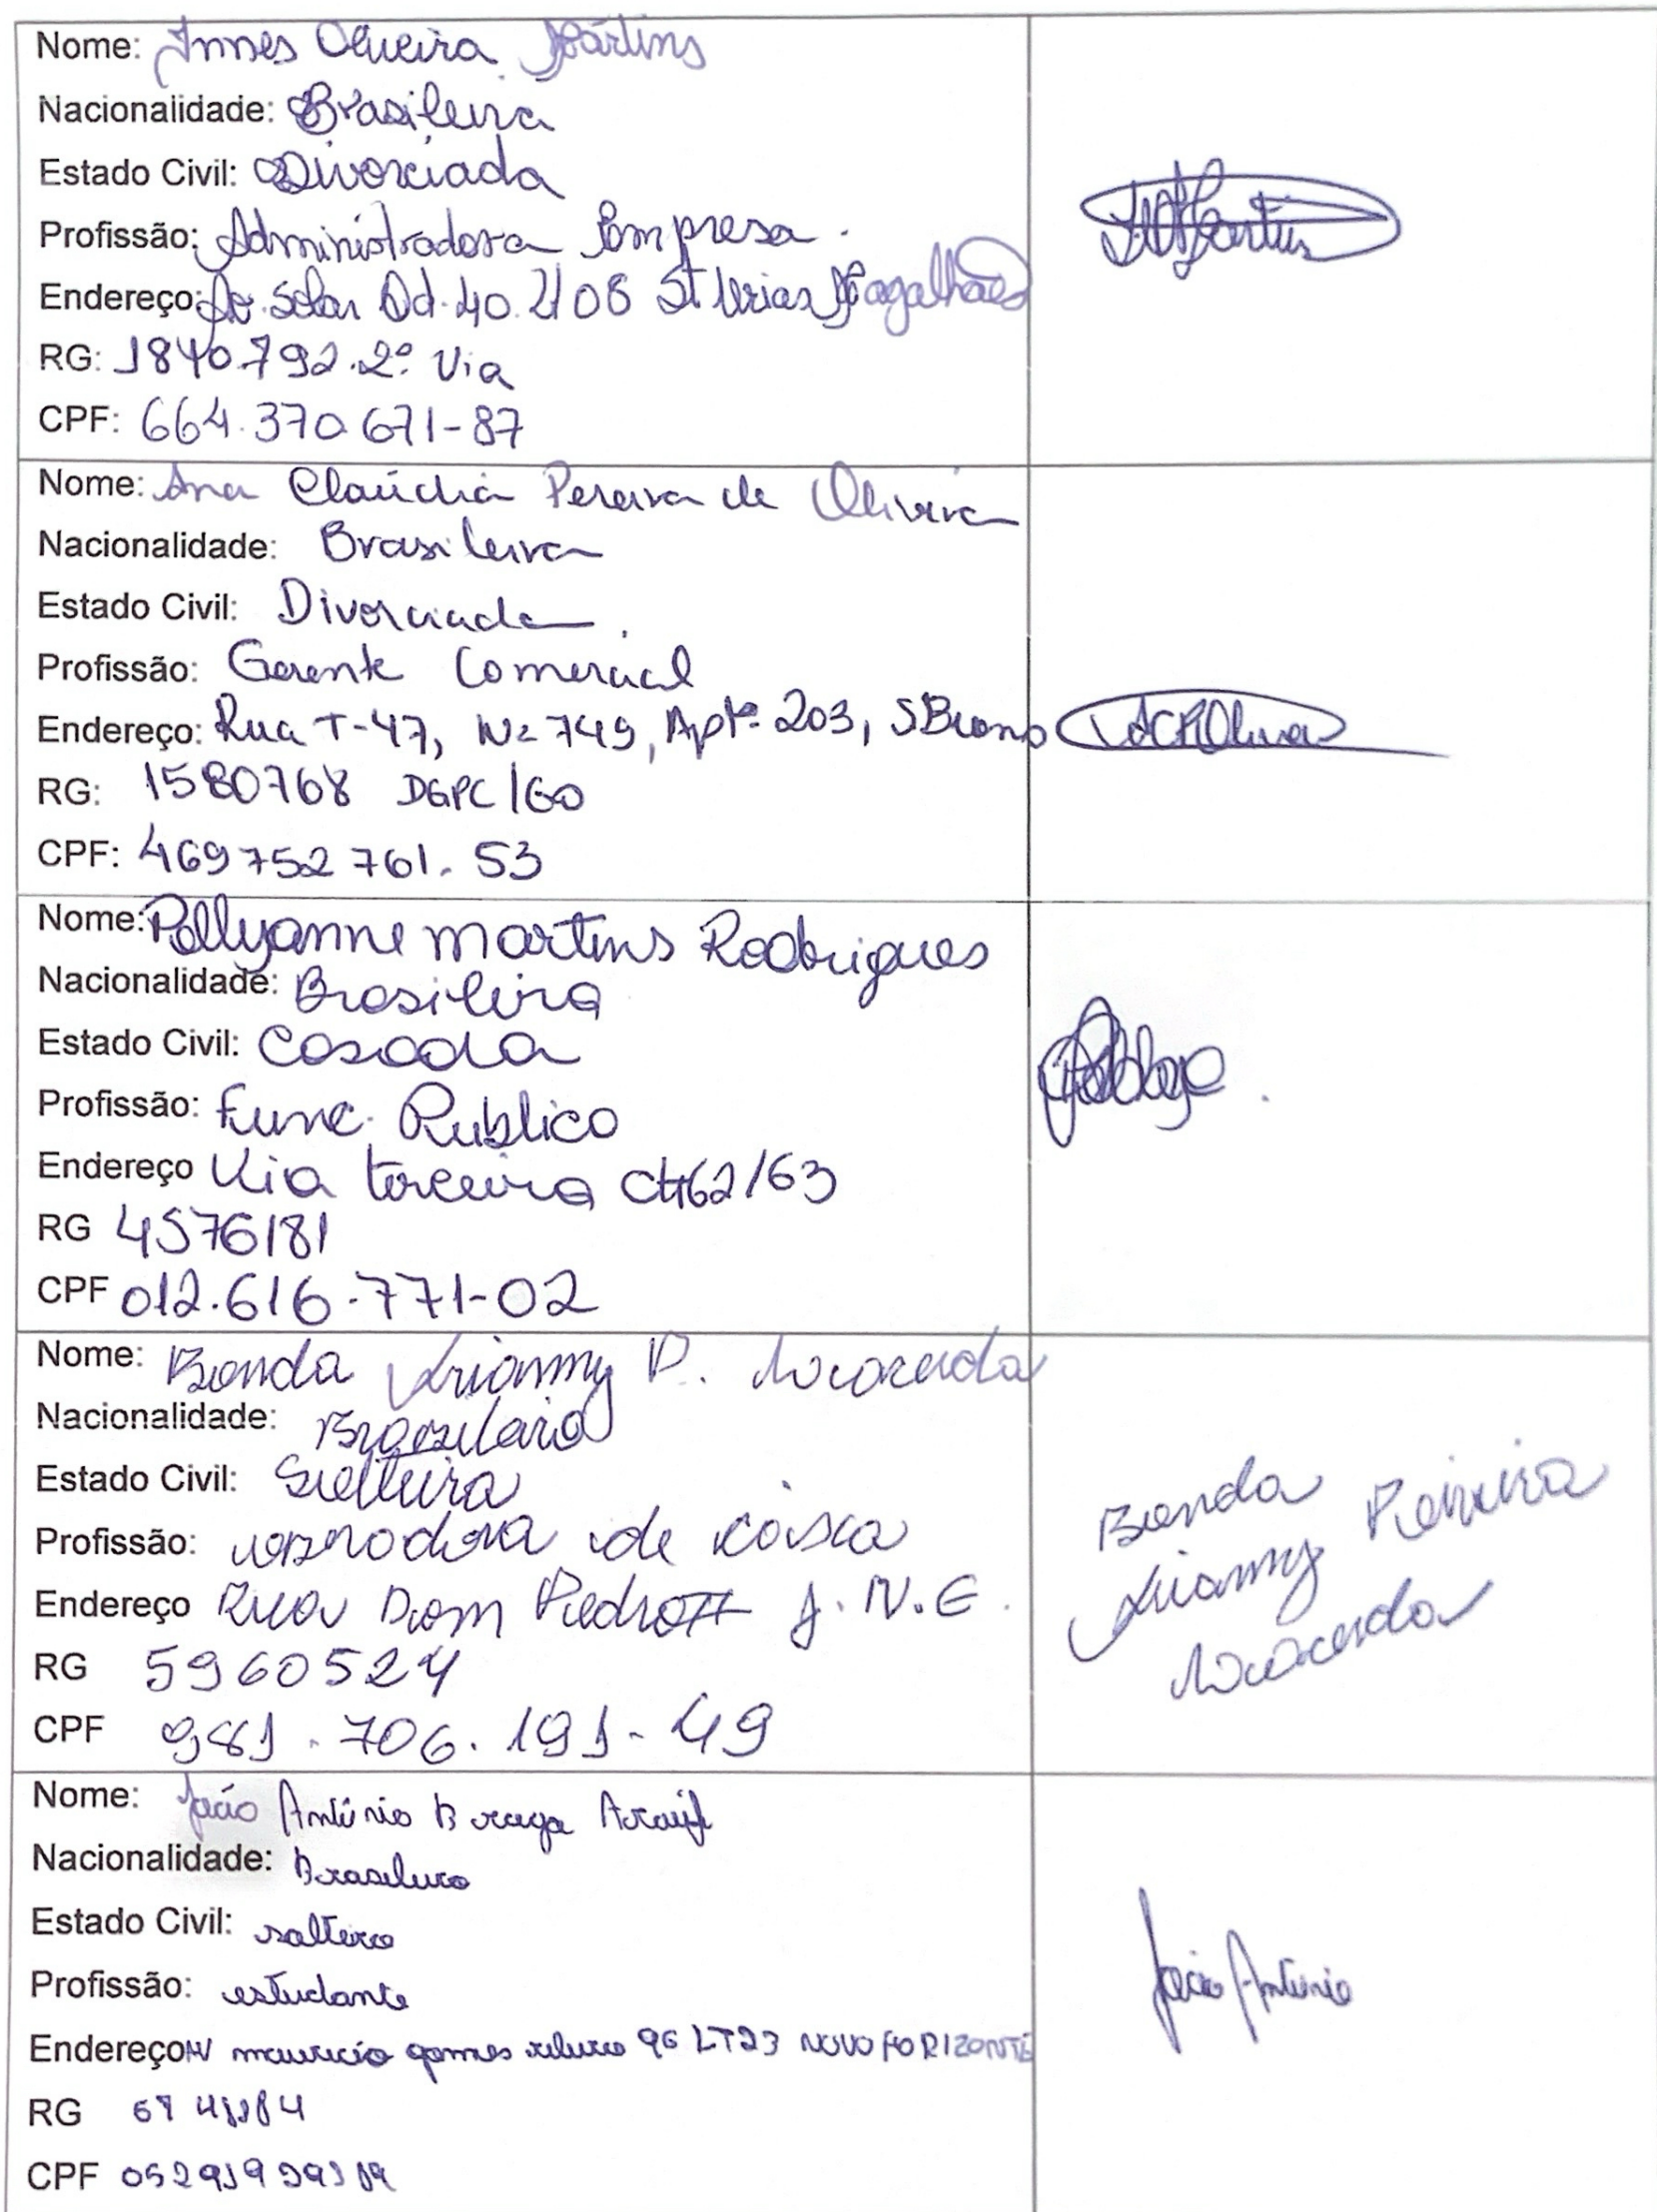 Nome: Innes Oliveira Martins
Nacionalidade: Brasileira
Estado Civil: Divorciada
Profissão: Administradora Empresa.
Endereço: Av. Solar Qd. 40 2/08 St Urias Magalhães
RG: 1840.792.2º Via
CPF: 664.370.671-87
Nome: Ana Claúdia Pereira de Oliveira
Nacionalidade: Brasileira
Estado Civil: Divorciada.
Profissão: Gerente Comercial
Endereço: Rua T-47, Nº 749, Aptº 203, S.Bueno
RG: 1580768 DGPC/GO
CPF: 469752761-53
Nome: Pollyanne Martins Rodrigues
Nacionalidade: Brasileira
Estado Civil: Casada
Profissão: Func. Publico
Endereço Via terceira 62/63
RG 4576181
CPF 012.616.771-02
Nome: P. Lacerda
Nacionalidade:
Estado Civil: Solteira
Profissão: de
Endereço Rua Dom Pedro II J.N.E.
RG 5960524
CPF 981.706.191-49
Pereira
Lacerda
Nome: João Antônio Braga Araújo
Nacionalidade: Brasileiro
Estado Civil: solteiro
Profissão: estudante
João Antônio
Endereço AV mauricio gomes 96 LT23 NOVO HORIZONTE
RG
CPF